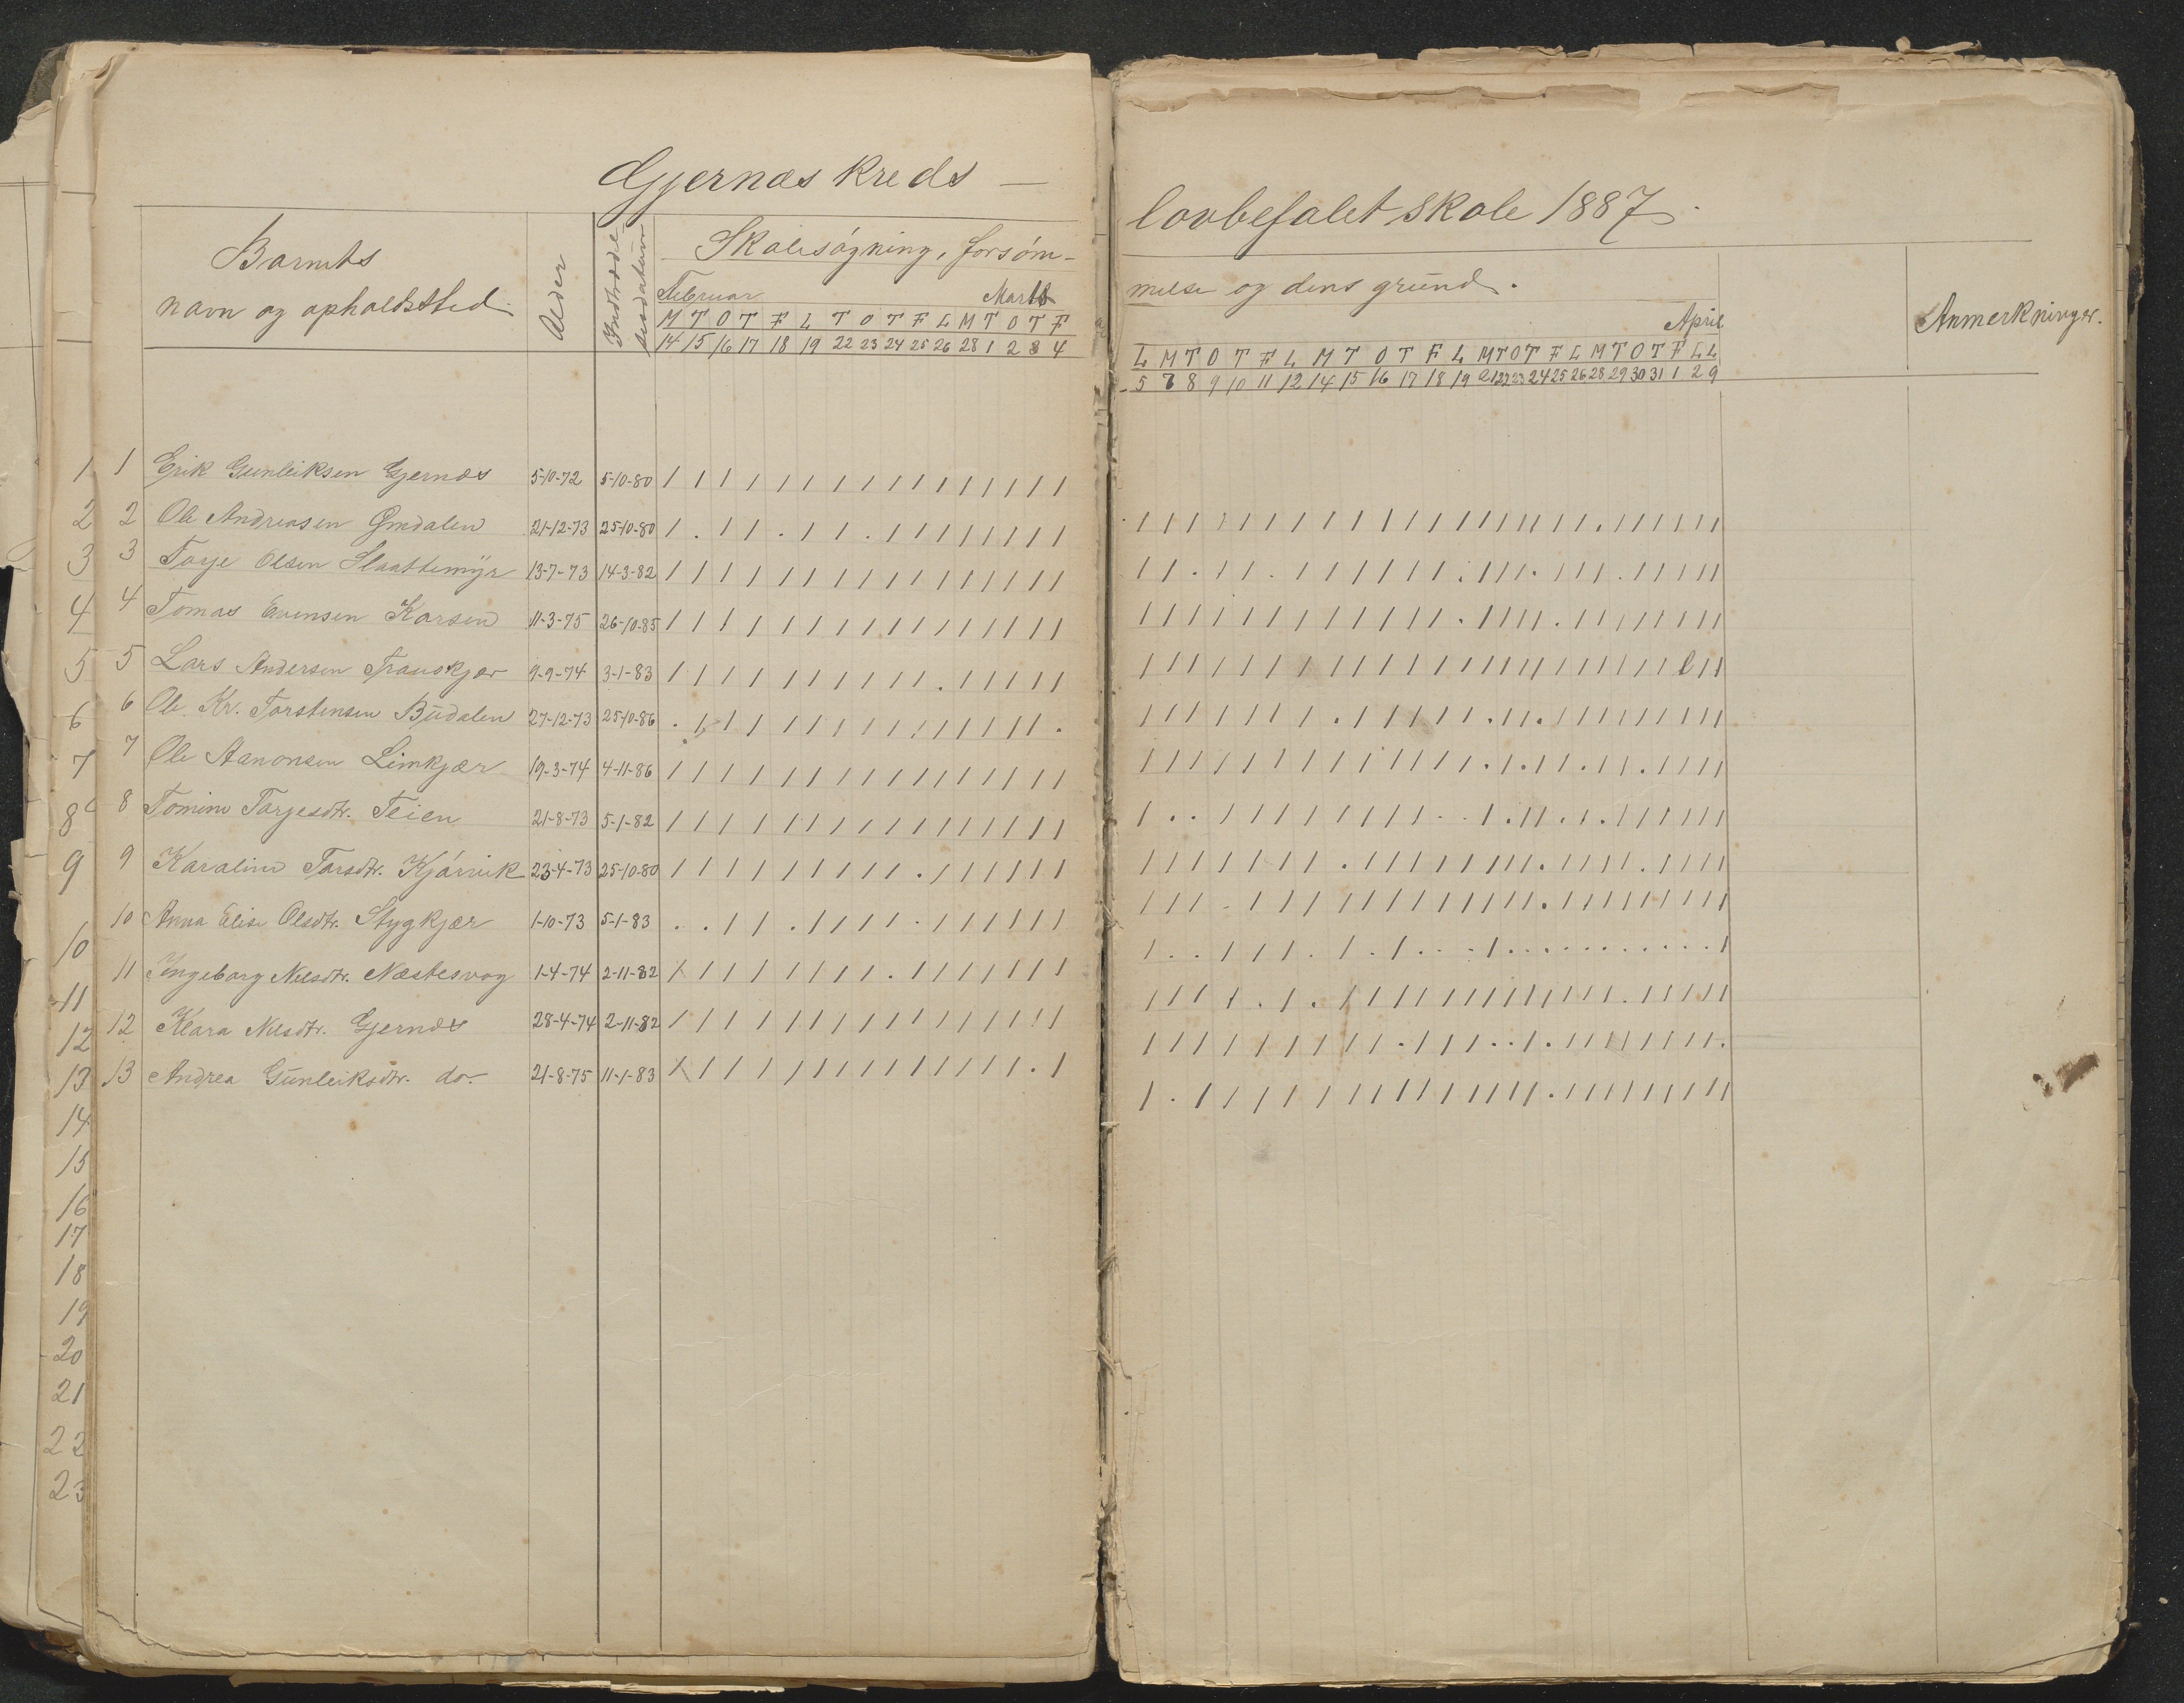 Gjernæs Kreds —
Barnets
navn og opholdssted.
Alder
Indtrædel-
sesdatum
Skolesøgning, forsøm-
Februar Marts
M T O T F L T O T F L M T O T F
14 15 16 17 18 19 22 23 24 25 26 28 1 2 3 4
1 1 Erik Gunleiksen Gjernæs 5-10-72 5-10-80 / / / / / / / / / / / / / / / /
2 2 Ole Andreasen 21-12-73 25-10-80 / . / / . / / . / / / / / / / /
3 3 Tarje Olsen Slaattemyr 13-7-73 14-3-82 / / / / / / / / / / / / / / / /
4 4 Tomas Evensen Karsen 11-3-75 26-10-85 / / / / / / / / / / / / / / / /
5 5 Lars Andersen 9-9-74 3-1-83 / / / / / / / / / / . / / / / /
6 6 Ole Kr. Torstensen Budalen 27-12-73 25-10-86 . / / / / / / / / / / / / / / .
7 7 Ole Aanonsen Limkjær 19-3-74 4-11-86 / / / / / / / / / / / / / / / /
8 8 Tomine Tarjesdtr. Teien 21-8-73 5-1-82 / / / / / / / / / / / / / / / /
9 9 Karaline Tarsdtr. Kjørvik 23-4-73 25-10-80 / / / / / / / / / . / / / / / /
10 10 Anna Elise Olsdtr. Stygkjær 1-10-73 5-1-83 . . / / . / / / / . / / / / / /
11 11 Ingeborg Nilsdtr. Næstesvog 1-4-74 2-11-82 / / / / / / / / . / / / / / / /
12 12 Klara Nilsdtr. Gjernæs 28-4-74 2-11-82 / / / / / / / / / / / / / / / /
13 13 Andrea Gunleiksdtr. do. 21-8-75 11-1-83 / / / / / / / / / / / / / / . /
14
15
16
17
18
19
20
21
22
23
lovbefalet skole 1887.
melse og dens grund.
April
Anmerkninger.
L M T O T F L M T O T F L M T O T F L M T O T F L L
5 7 8 9 10 11 12 14 15 16 17 18 19 21 22 23 24 25 26 28 29 30 31 1 2 9
/ / / / / / / / / / / / / / / / / / / . / / / / / /
/ / . / / . / / / / / / . / / / . / / / . / / / / /
/ / / / / / / / / / / / . / / / / . / / / / / / / /
/ / / / / / / / / / / / / / / / / / / / / / / / / /
/ / / / / / / . / / / / / . / / . / / / / / / / / /
/ / / / / / / / / / / / / . / . / / . / / . / / / /
/ . . / / / / / / / / . . / . / / . / . / / / / / /
/ / / / / / / . / / / / / / / / . / / / / . / / / /
/ / / . / / / / / / / / / / / / . / / / / / / / / /
/ . . / / / . / . / . . . / . . . . . . . . . . . /
/ / / / . / . / / / / / / / / / / / / / . / / / / /
/ / / / / / / / / / . / / / . . / . / / / / / / / .
/ . / / / / / / / / / / / / / / / . / / / / / / / /